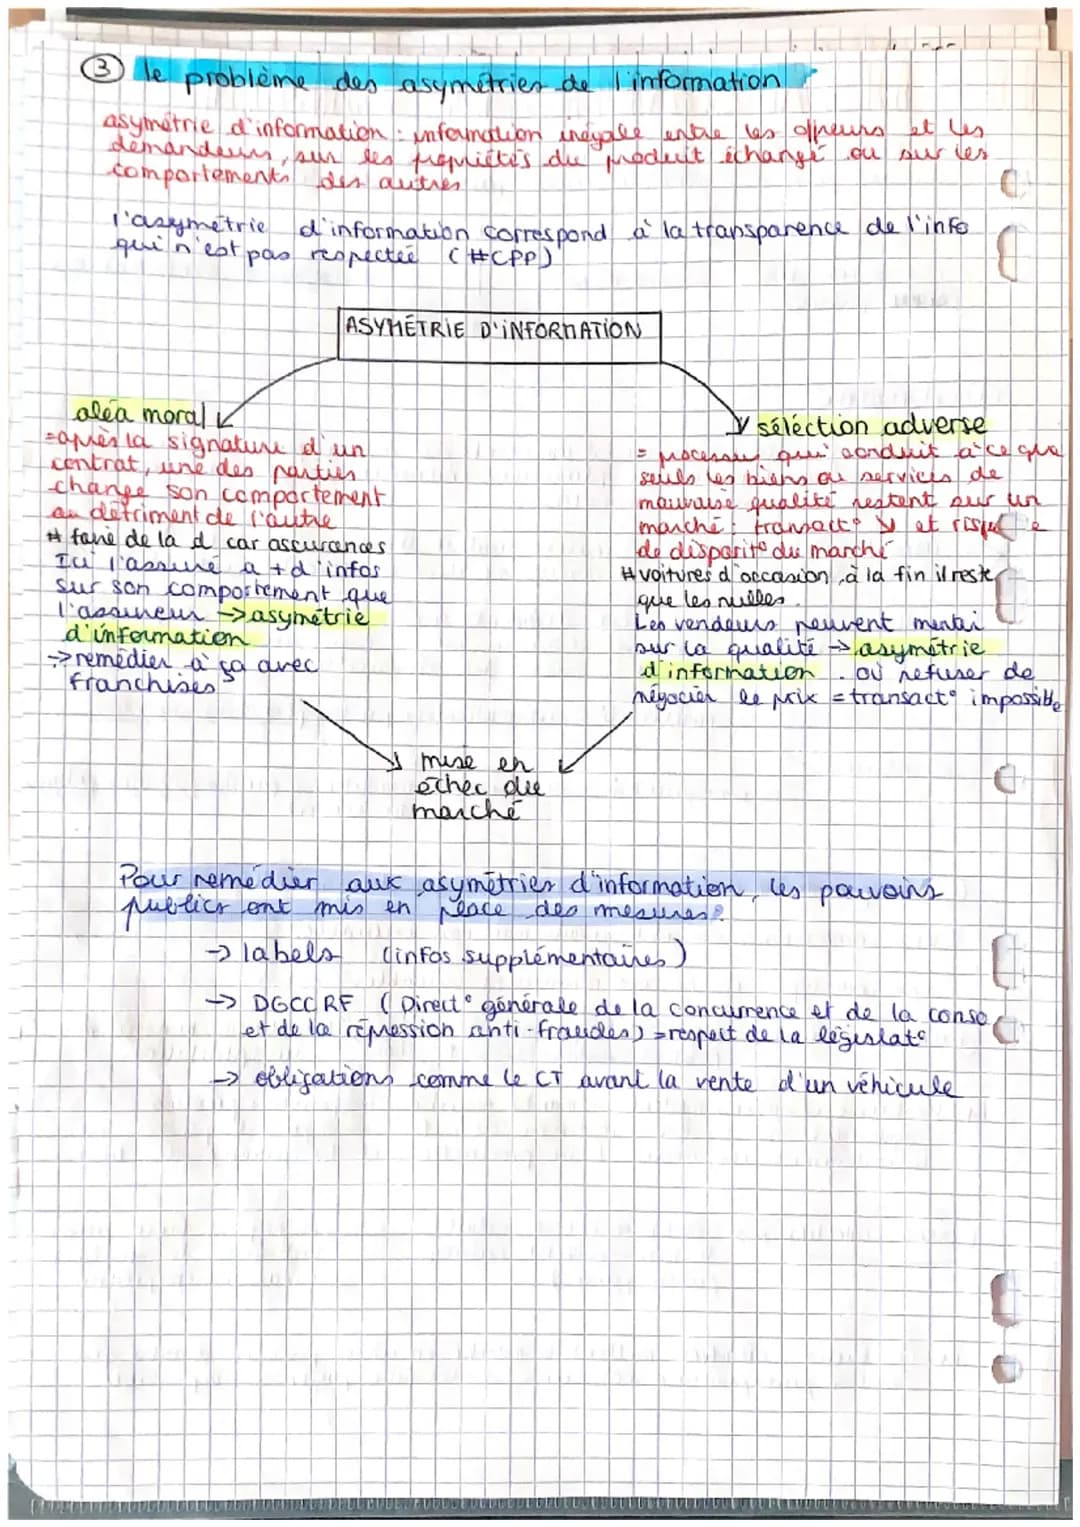 ③ le problème des asymétries de l'information
asymétrie d'information : information inégale entre les offreurs et les
demandeurs, sur les propriétés du produit échangé ou sur les
comportements des autres
l'asymétrie d'information correspond à la transparence de l'info
qui n'est pas respectée (#CPP)
ASYMÉTRIE D'INFORMATION
aléa moral
=après la signature d'un
contrat, une des parties
change son comportement
au détriment de l'autre
# faire de la d car assurances
Ici l'assuré a + d'infos
sur son comportement que
l'assureur → asymétrie
d'information
→ remédier à ça avec
franchises
séléction adverse
= processus qui conduit à ce que
seuls les biens ou services de
mauvaise qualité restent sur un
marché : transact° ↘ et risque
de disparit° du marché
# voitures d'occasion, à la fin il reste
que les nulles.
Les vendeurs peuvent mentir
sur la qualité → asymétrie
d'information . où refuser de
négocier le prix = transact° impossible
mise en
échec du
marché
Pour remédier aux asymétries d'information, les pouvoirs
publics ont mis en place des mesures:
→ labels (infos supplémentaires)
→ DGCCRF (Direct° générale de la concurrence et de la conso
et de la répression anti-fraudes) = respect de la législat°
→ obligations comme le CT avant la vente d'un véhicule